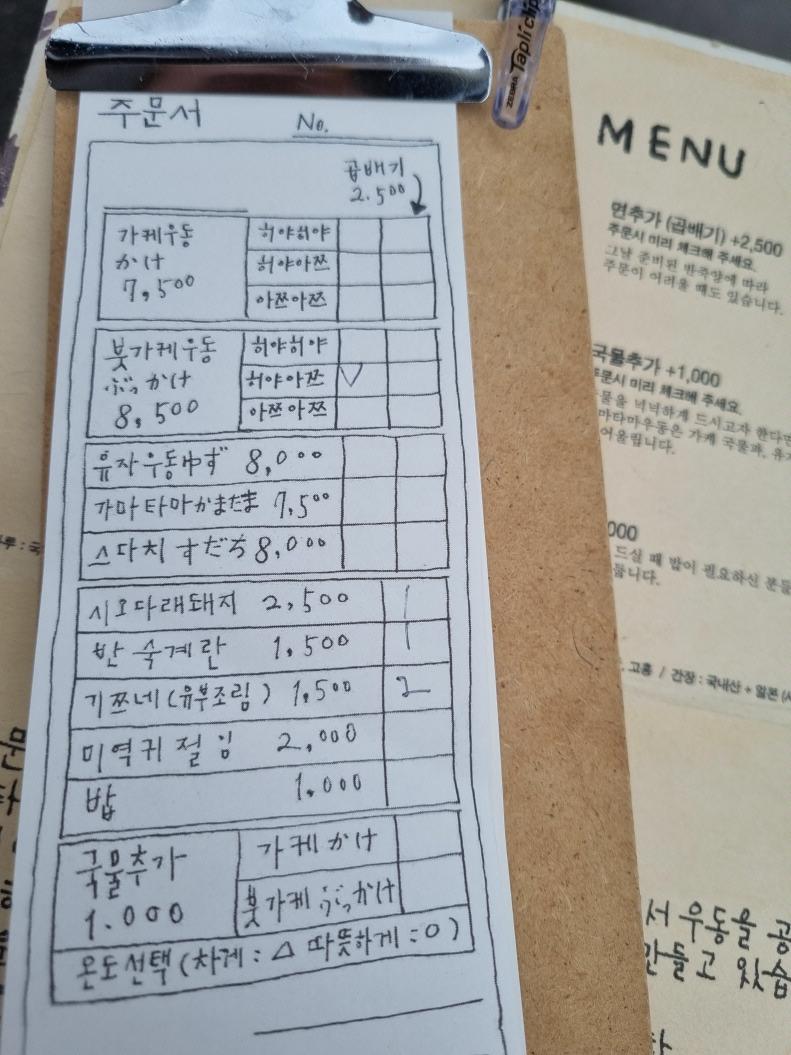 ZEBRA Tapli clip
주문서
No.
곱배기
2.500
가케우동
かけ
7,500
히야히야
히야아쯔
아쯔아쯔
붓가케우동
ぶっかけ
8,500
히야히야
히야아쯔
V
아쯔아쯔
유자우동ゆず 8,000
가마타마かまたま 7,500
스다치 すだち 8,000
시오다래돼지 2,500 1
반숙계란 1,500 1
기쯔네(유부조림) 1,500 2
미역귀절임 2,000
밥 1,000
국물추가
1.000
가케かけ
붓가케ぶっかけ
온도선택(차게:△ 따뜻하게:○)
MENU
면추가 (곱배기) +2,500
주문시 미리 체크해 주세요.
그날 준비된 반죽양에 따라
주문이 어려울 때도 있습니다.
국물추가 +1,000
주문시 미리 체크해 주세요.
국물을 넉넉하게 드시고자 한다면
마타마우동은 가케 국물과, 유자
어울립니다.
000
드실 때 밥이 필요하신 분들
고흥 / 간장 : 국내산 + 일본
서 우동을 공
만들고 있습